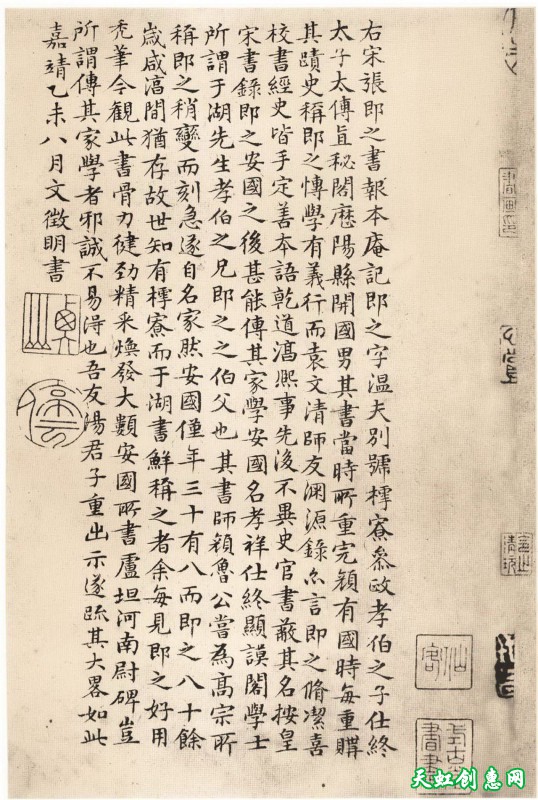 右宋張即之書報本庵記即之字温夫別號樗寮叅政孝伯之子仕終
太子太傅直秘閣歷陽縣開國男其書當時所重完顔有國時每重購
其蹟史稱即之博學有義行而袁文清師友淵源錄亦言即之脩潔喜
校書經史皆手定善本語乾道淳熙事先後不異史官書蔽其名按皇
宋書錄即之安國之後甚能傳其家學安國名孝祥仕終顯謨閣學士
所謂于湖先生孝伯之兄即之之伯父也其書師顔魯公嘗為高宗所
稱即之稍變而刻急遂自名家然安國僅年三十有八而即之八十餘
歲咸淳間猶存故世知有樗寮而于湖書鮮稱之者余每見即之好用
禿筆今觀此書骨力健勁精采煥發大類安國所書盧坦河南尉碑豈
所謂傳其家學者邪誠不易得也吾友湯君子重出示遂疏其大畧如此
嘉靖乙未八月文徵明書
停雲
仙客
天虹创惠网